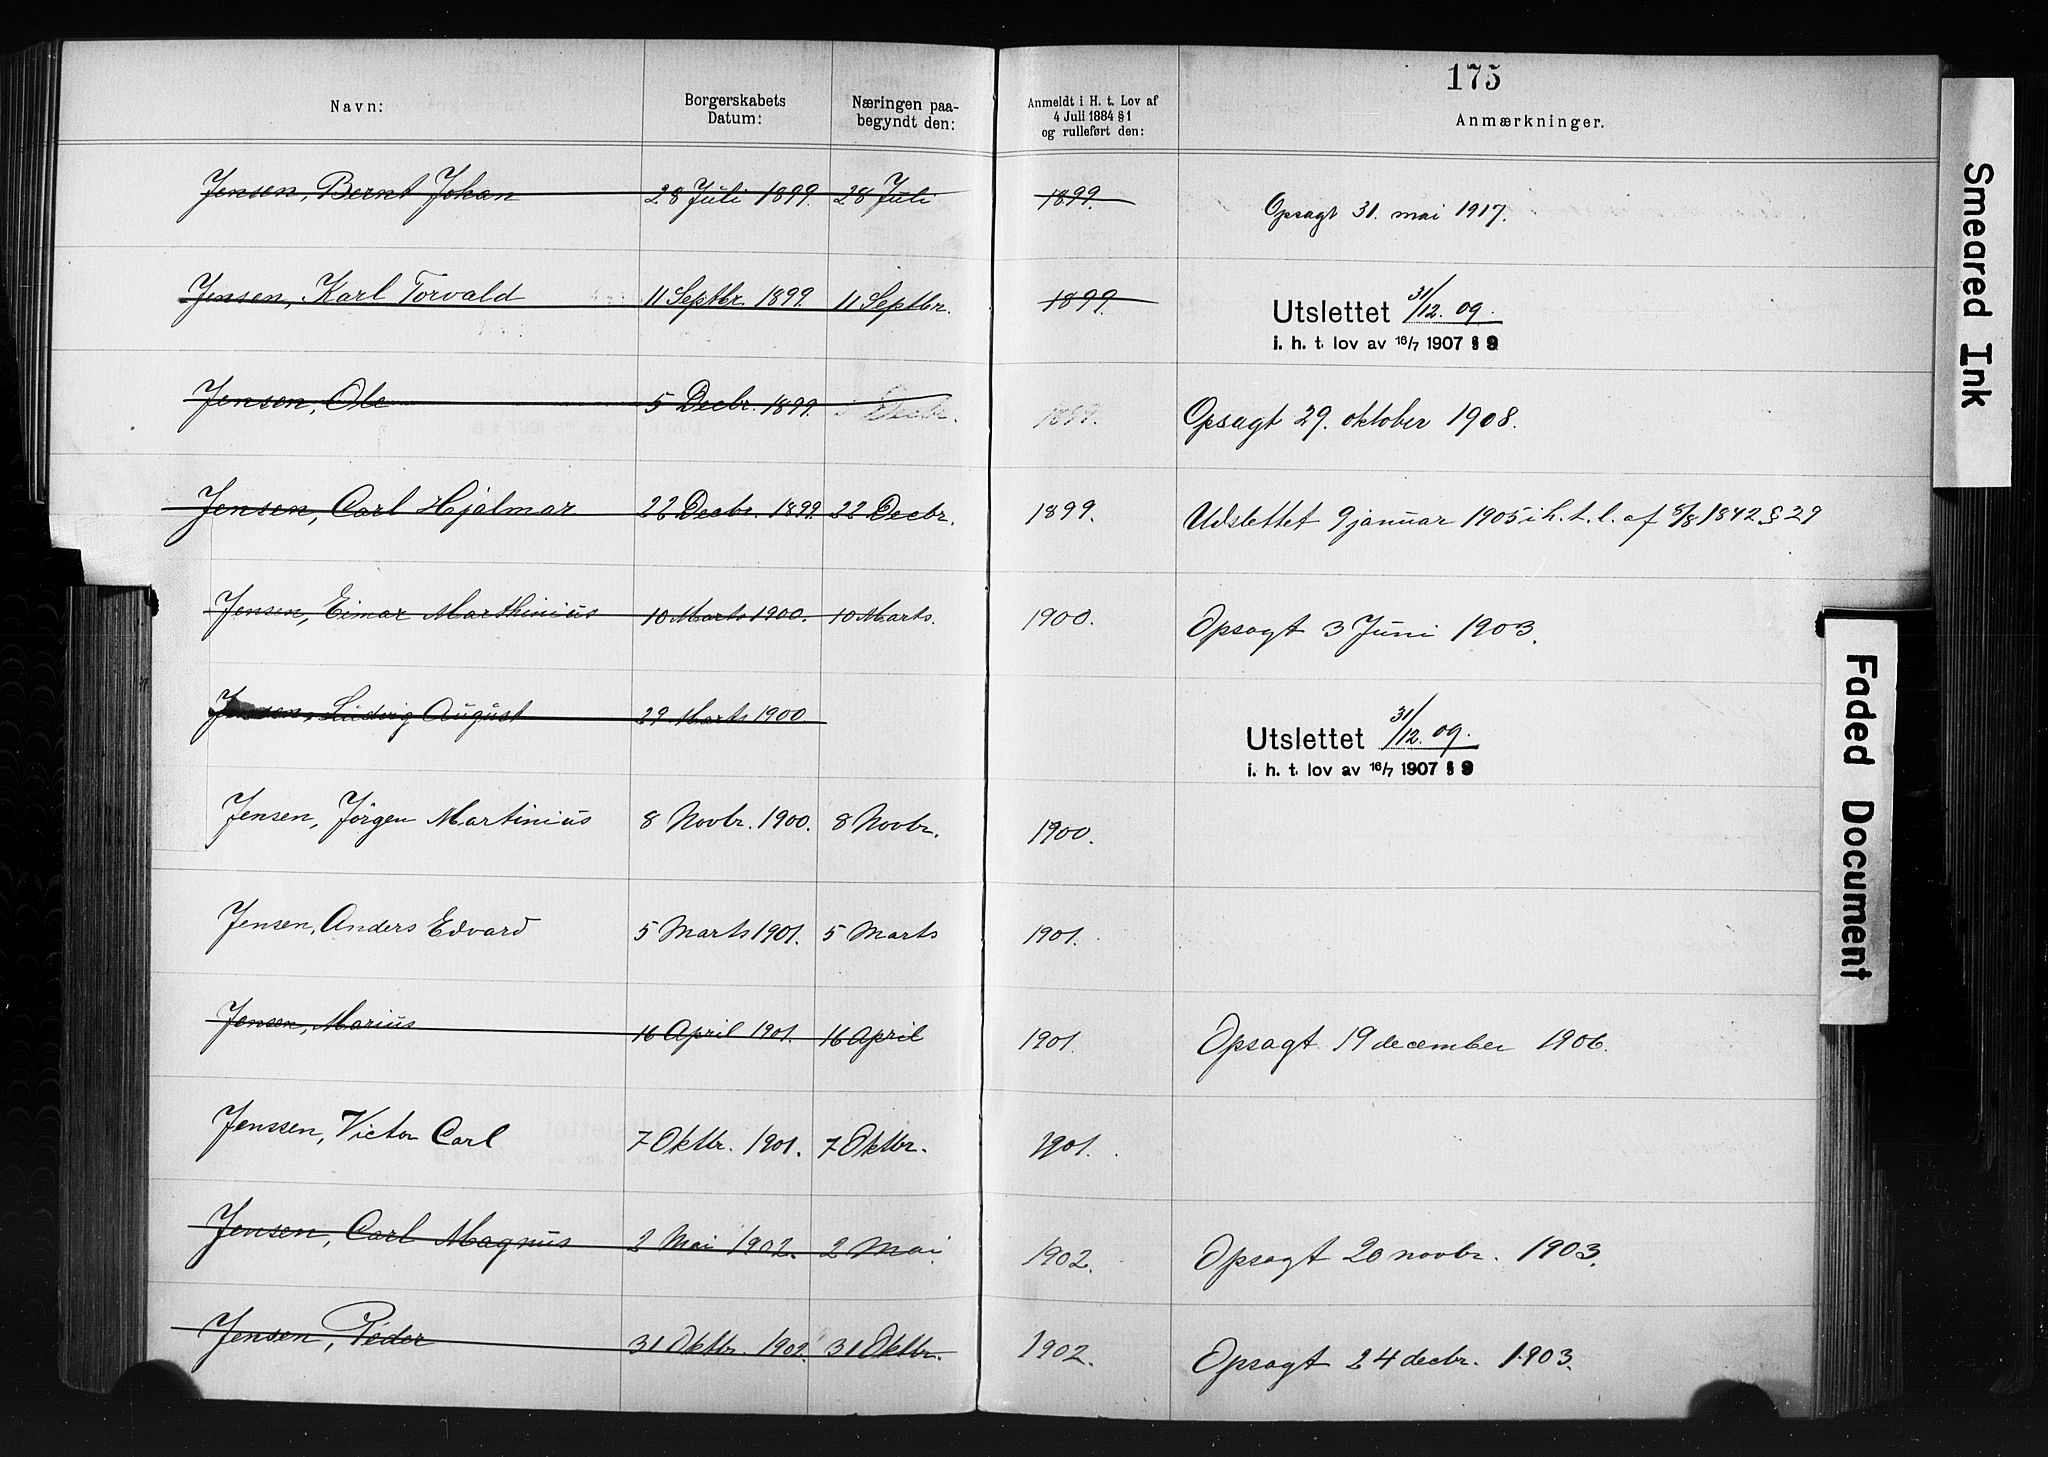 175
Navn: Borgerskabets Datum: Næringen paa- begyndt den: Anmeldt i H. t. Lov af 4 Juli 1884 § 1 og rulleført den: Anmærkninger.
Jensen, Bernt Johan 28 Juli 1899. 28 Juli 1899. Opsagt 31. mai 1917.
Jensen, Karl Torvald 11 Septbr. 1899. 11 Septbr. 1899. Utslettet 31/12. 09.
i. h. t. lov av 16/7 1907 § 9
Jensen, Ole 5 Decbr. 1899. 5 Decbr. 1899. Opsagt 29. oktober 1908.
Jensen, Carl Hjalmar 22 Decbr. 1899. 22 Decbr. 1899. Udslettet 9 januar 1905 i h. t. l. af 8/8 1842 § 29
Jensen, Einar Marthinius 10 Marts 1900. 10 Marts. 1900. Opsagt 3 Juni 1903.
Jensen, Ludvig August 29 Marts 1900 Utslettet 31/12. 09.
i. h. t. lov av 16/7 1907 § 9
Jensen, Jörgen Martinius 8 Novbr. 1900. 8 Novbr. 1900.
Jensen, Anders Edvard 5 Marts 1901. 5 Marts 1901.
Jensen, Marius 16 April 1901. 16 April 1901. Opsagt 19 december 1906.
Jenssen, Victor Carl 7 Oktbr. 1901. 7 Oktbr. 1901.
Jensen, Carl Magnus 2 Mai 1902. 2 Mai 1902. Opsagt 20 novbr. 1903.
Jensen, Peder 31 Oktbr. 1902. 31 Oktbr. 1902. Opsagt 24 decbr. 1903.
Smeared Ink
Faded Document